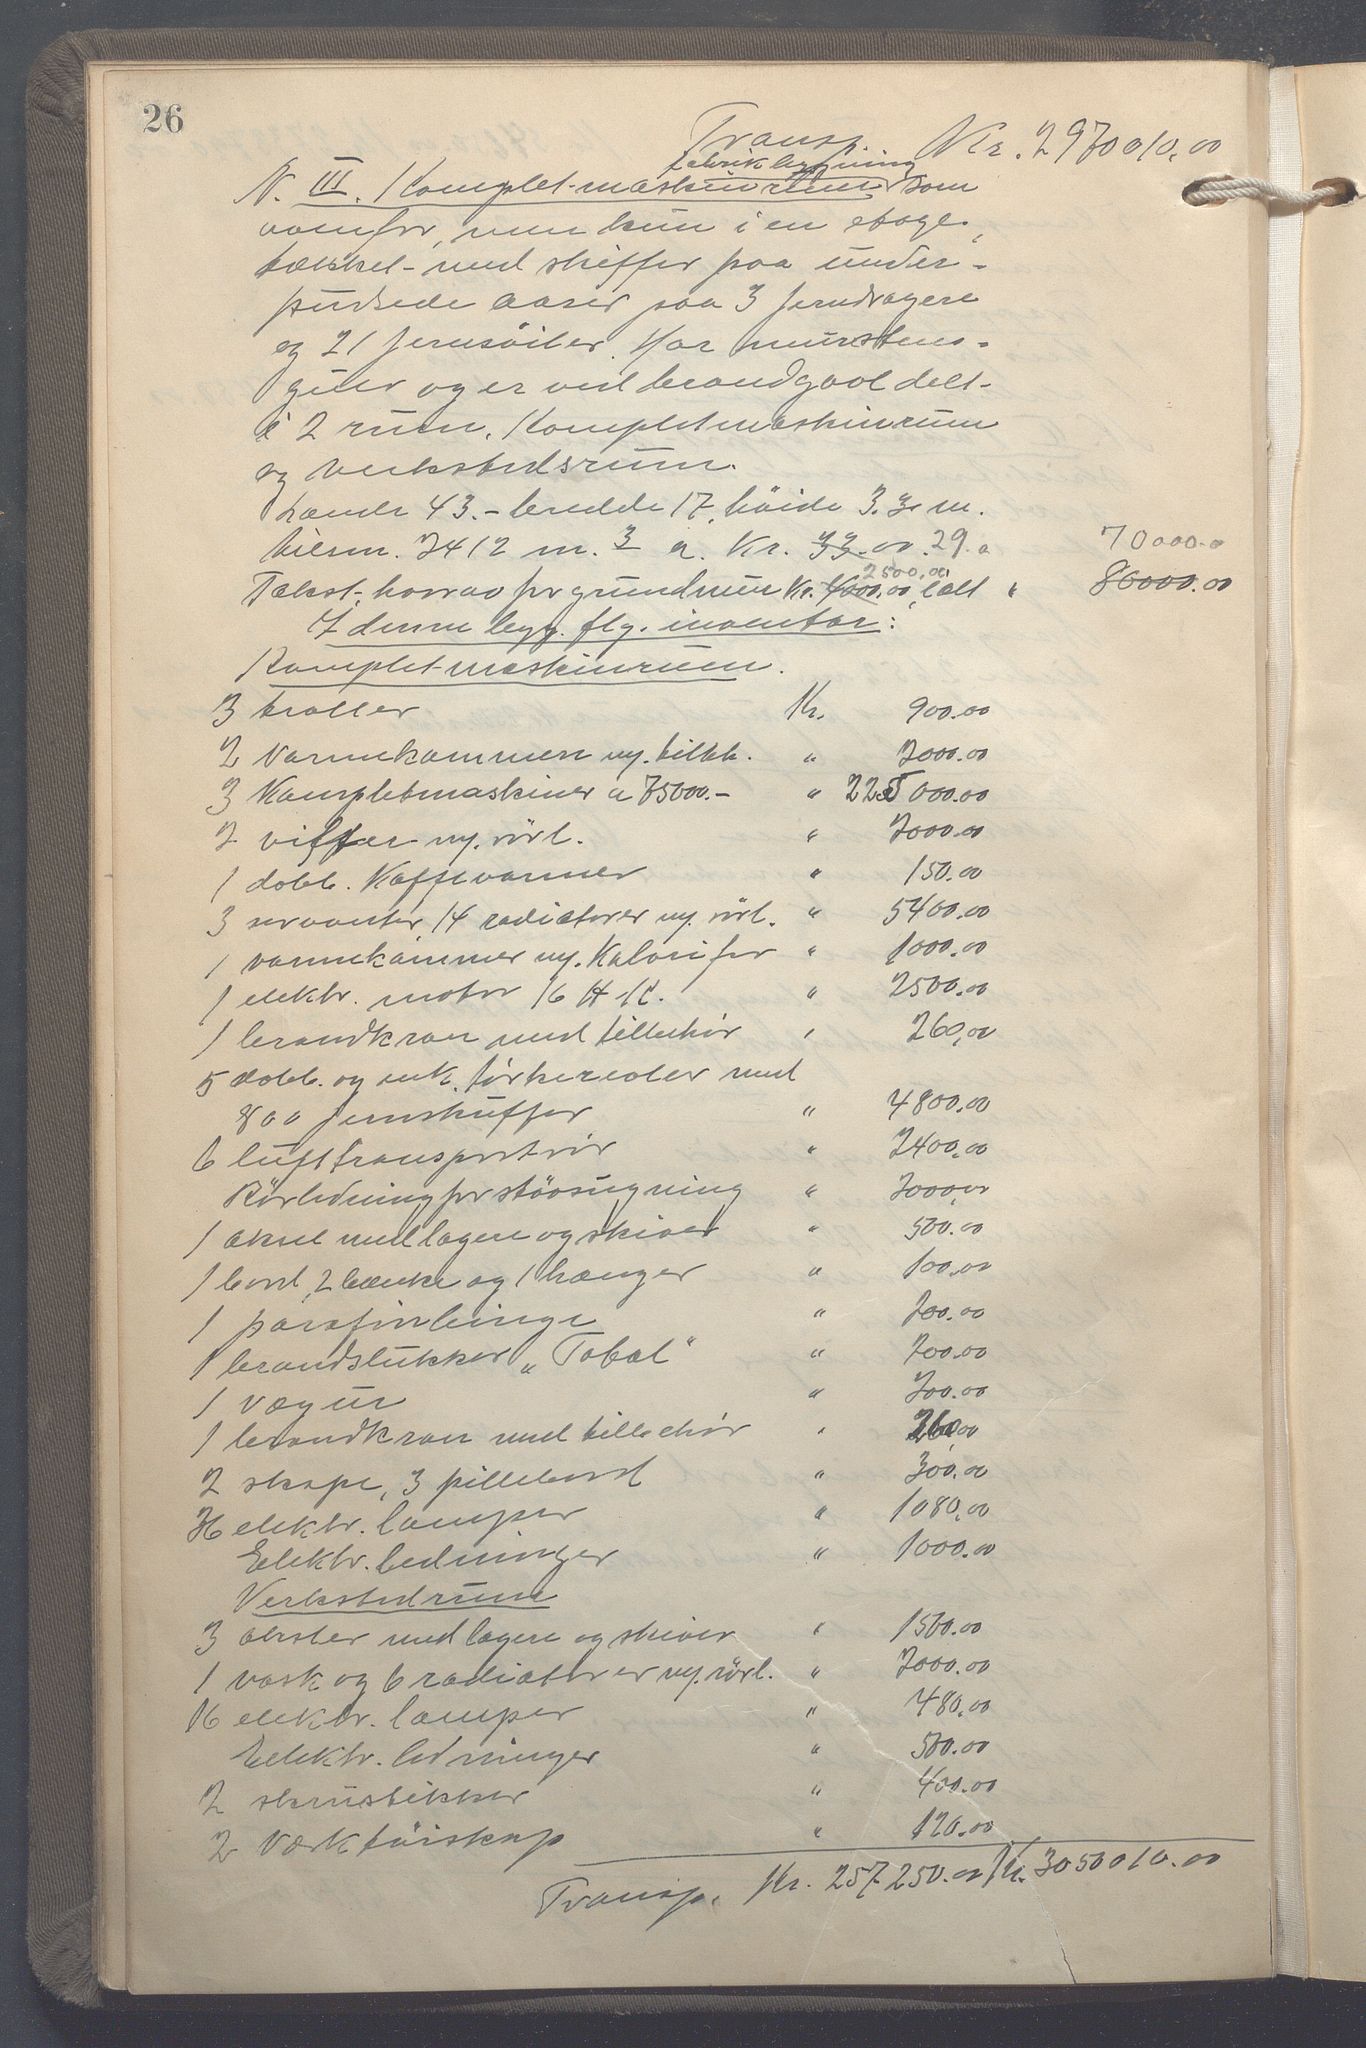 26
Transp. Kr. 2970010.00
fabrikbygning
N. III. Komplet-maskinrum som
ovenfor, men kun i en etage,
tækket med skiffer paa under-
pudsede aaser paa 3 Jerndragere
og 21 jernsöiler. Har murstens-
gulv og er ved brandgavl delt
i 2 rum. Kompletmaskinrum
og verkstedsrum.
Længde 43.- bredde 17, höide 3.3 m.
tilsm. 2412 m.3 a. Kr. 33.00. 29.0 70000.0
2500,00
Takst, hvorav for grundmur Kr. 4000.00, ialt " 80000.00
I denne byg. flg. inventar:
Komplet-maskinrum.
3 traller Kr. 900.00
2 varmekammere m. tilbh. " 2000.00
3 Kompletmaskiner a 75000.- " 225000.00
2 vifter m. rörl. " 2000.00
1 dobb. Kaffevarmer " 150.00
3 servanter, 14 radiatorer m. rörl. " 5400.00
1 varmekammer m. Kalorifer " 1000.00
1 elektr. motor 16 H.K. " 2500.00
1 brandkran med tilbehör " 260,00
5 dobb. og enk. törkereoler med
800 jernskuffer " 4800.00
6 lufttransportrör " 2400.00
Rörledning for stövsugning " 2000,00
1 aksel med lagere og skiver " 500.00
1 bord, 2 bænke og 1 hænger " 100.00
1 parafinbinge " 200.00
1 brandslukker "Tobal" " 200.00
1 vægur " 200.00
1 brandkran med tilbehör " 260,00
2 skape, 3 pillebord " 300.00
36 elektr. lamper " 1080,00
Elektr. ledninger " 1000.00
Verkstedrum
3 aksler med lagere og skiver " 1500.00
1 vask og 6 radiatorer m. rörl. " 2000.00
16 elektr. lamper " 480,00
Elektr. ledninger " 500.00
2 skrustikker " 400.00
2 Værktöiskap " 120.00
Transp. Kr. 257250.00 Kr. 3050010.00